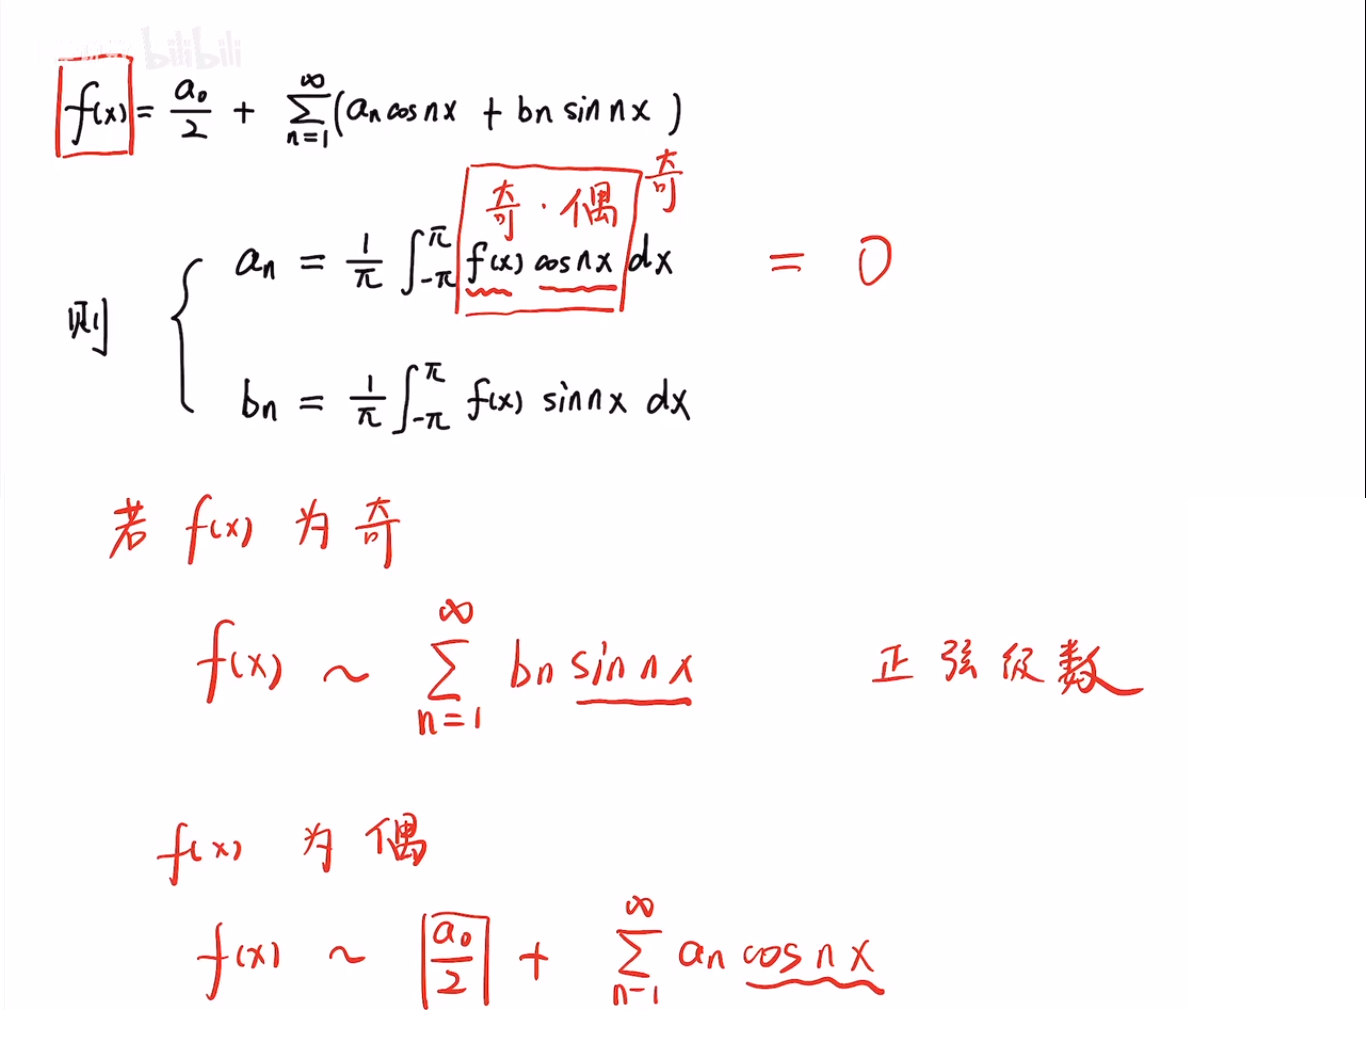 bilibili
f(x) = a₀/2 + ∑_{n=1}^{∞} (aₙ cos nx + bₙ sin nx)
奇 · 偶 奇
则 { aₙ = 1/π ∫_{-π}^{π} f(x) cos nx dx = 0
bₙ = 1/π ∫_{-π}^{π} f(x) sin nx dx
若 f(x) 为 奇
f(x) ~ ∑_{n=1}^{∞} bₙ sin nx 正弦级数
f(x) 为 偶
f(x) ~ a₀/2 + ∑_{n-1}^{∞} aₙ cos nx